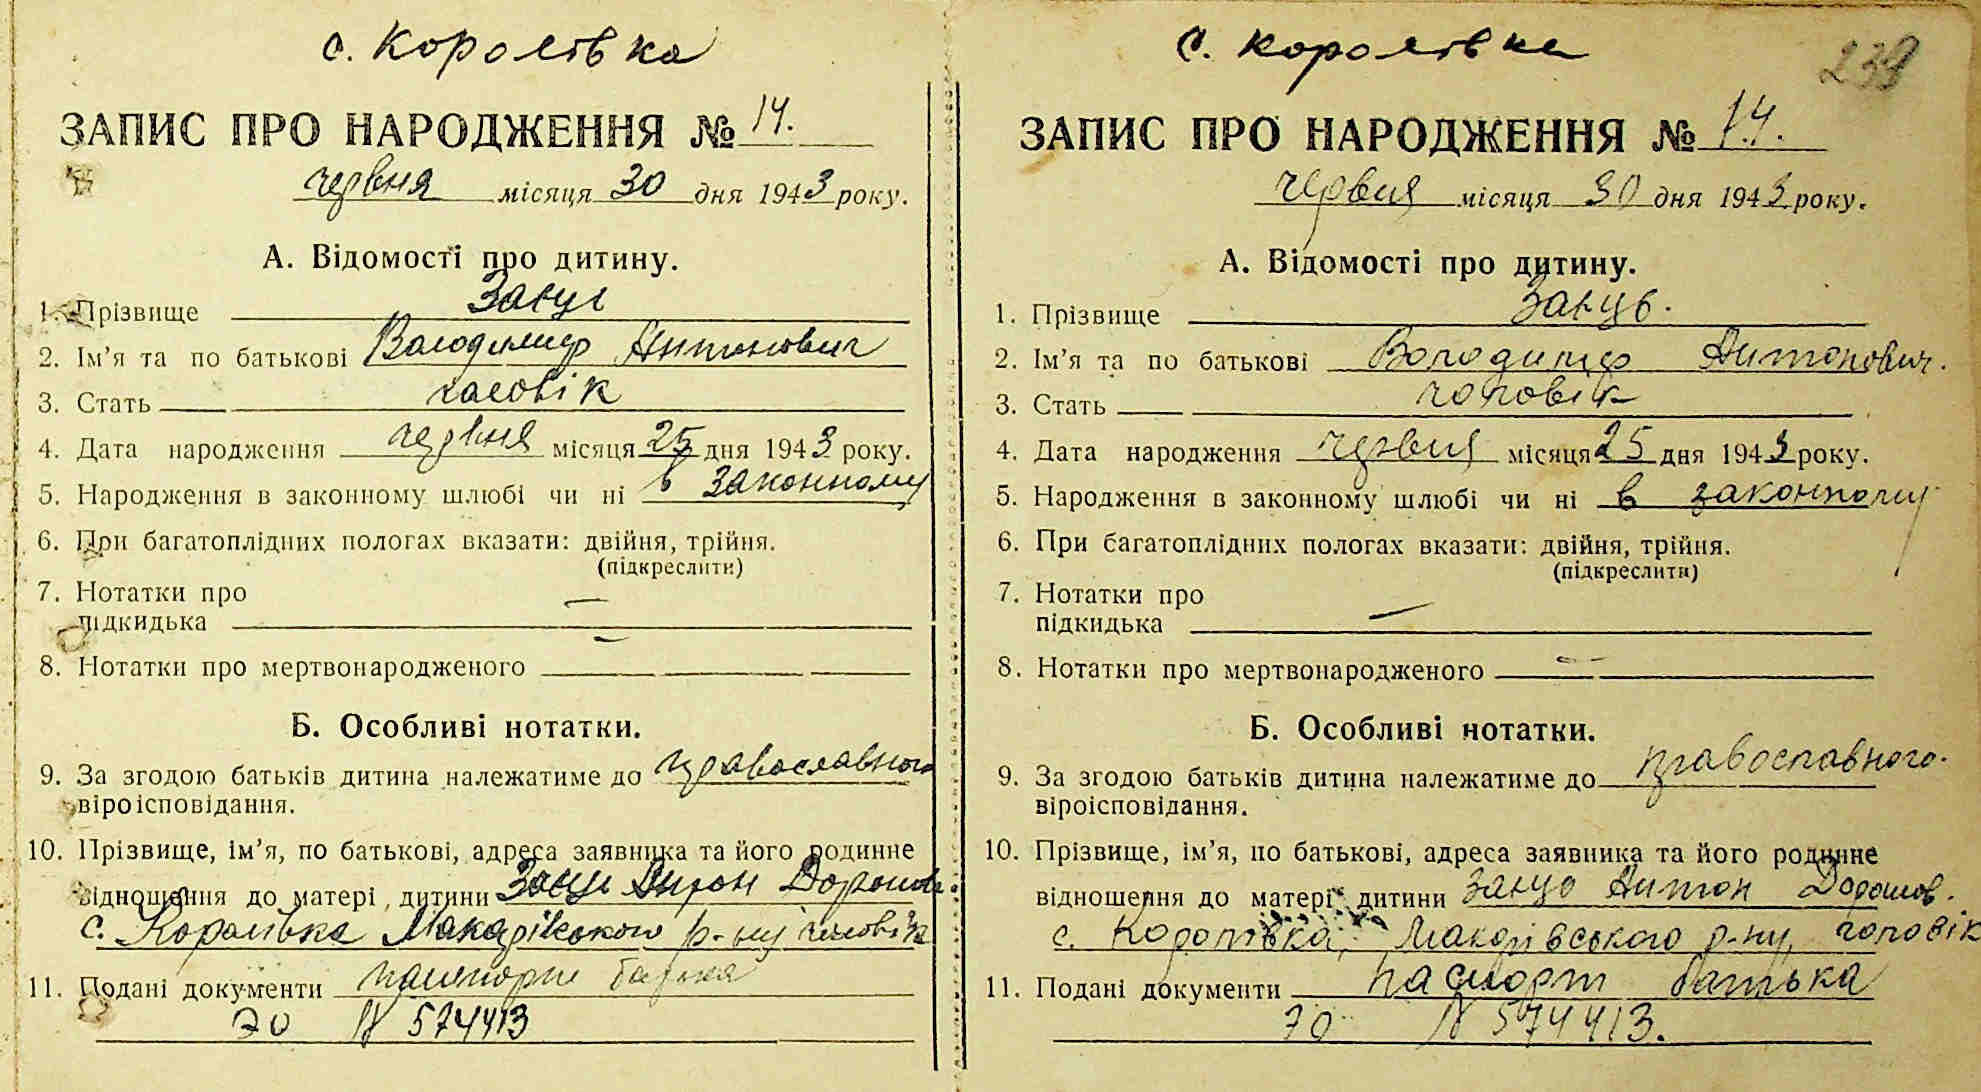 с. Королівка
ЗАПИС ПРО НАРОДЖЕННЯ № 14.
червня місяця 30 дня 1943 року.
А. Відомості про дитину.
1. Прізвище Заєць
2. Ім’я та по батькові Володимир Антонович
3. Стать чоловік
4. Дата народження червня місяця 25 дня 1943 року.
5. Народження в законному шлюбі чи ні в законному
6. При багатоплідних пологах вказати: двійня, трійня.
(підкреслити)
7. Нотатки про
підкидька —
8. Нотатки про мертвонародженого —
Б. Особливі нотатки.
9. За згодою батьків дитина належатиме до православного
віроісповідання.
10. Прізвище, ім’я, по батькові, адреса заявника та його родинне
відношення до матері дитини Антон
с. Королівка Макарівського р-ну чоловік
11. Подані документи паспорт батька
№ 574413
с. Королівка
239
ЗАПИС ПРО НАРОДЖЕННЯ № 14.
червня місяця 30 дня 1943 року.
А. Відомості про дитину.
1. Прізвище Заєць.
2. Ім’я та по батькові Володимир Антонович.
3. Стать чоловік
4. Дата народження червня місяця 25 дня 1943 року.
5. Народження в законному шлюбі чи ні в законному
6. При багатоплідних пологах вказати: двійня, трійня.
(підкреслити)
7. Нотатки про
підкидька —
8. Нотатки про мертвонародженого —
Б. Особливі нотатки.
9. За згодою батьків дитина належатиме до православного.
віроісповідання.
10. Прізвище, ім’я, по батькові, адреса заявника та його родинне
відношення до матері дитини Антон
с. Королівка, Макарівського р-ну, чоловік
11. Подані документи паспорт батька
№ 574413.